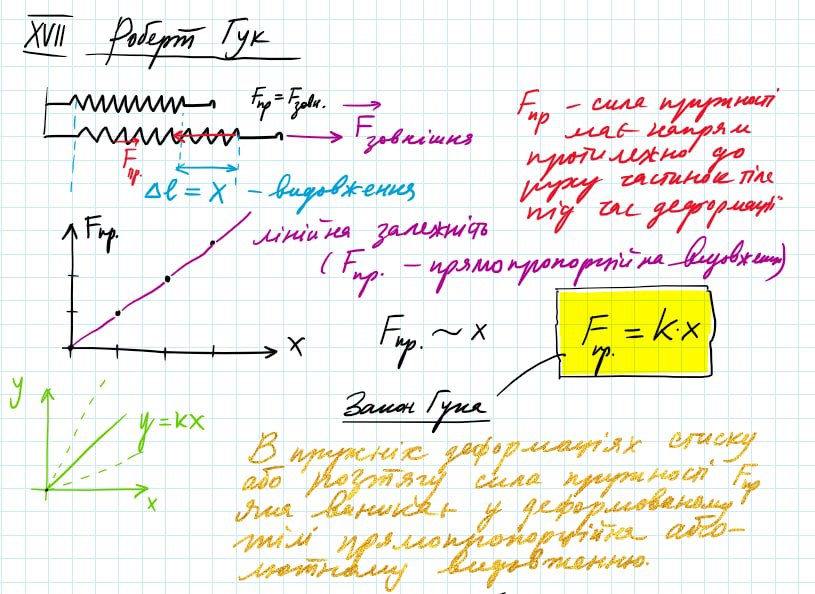 XVII Роберт Гук
Fпр = Fзовн.
Fзовнішня
Fпр.
Δl = x - видовження
Fпр - сила пружності
має напрям
протилежно до
руху частинок тіла
під час деформації
Fпр.
лінійна залежність
(Fпр. - прямопропорційна видовженню)
x
Fпр. ~ x
Fпр. = k·x
Закон Гука
y
y = kx
x
В пружніх деформаціях стиску
або розтягу сила пружності Fпр
яка виникає у деформованому
тілі прямопропорційна абсо-
лютному видовженню.